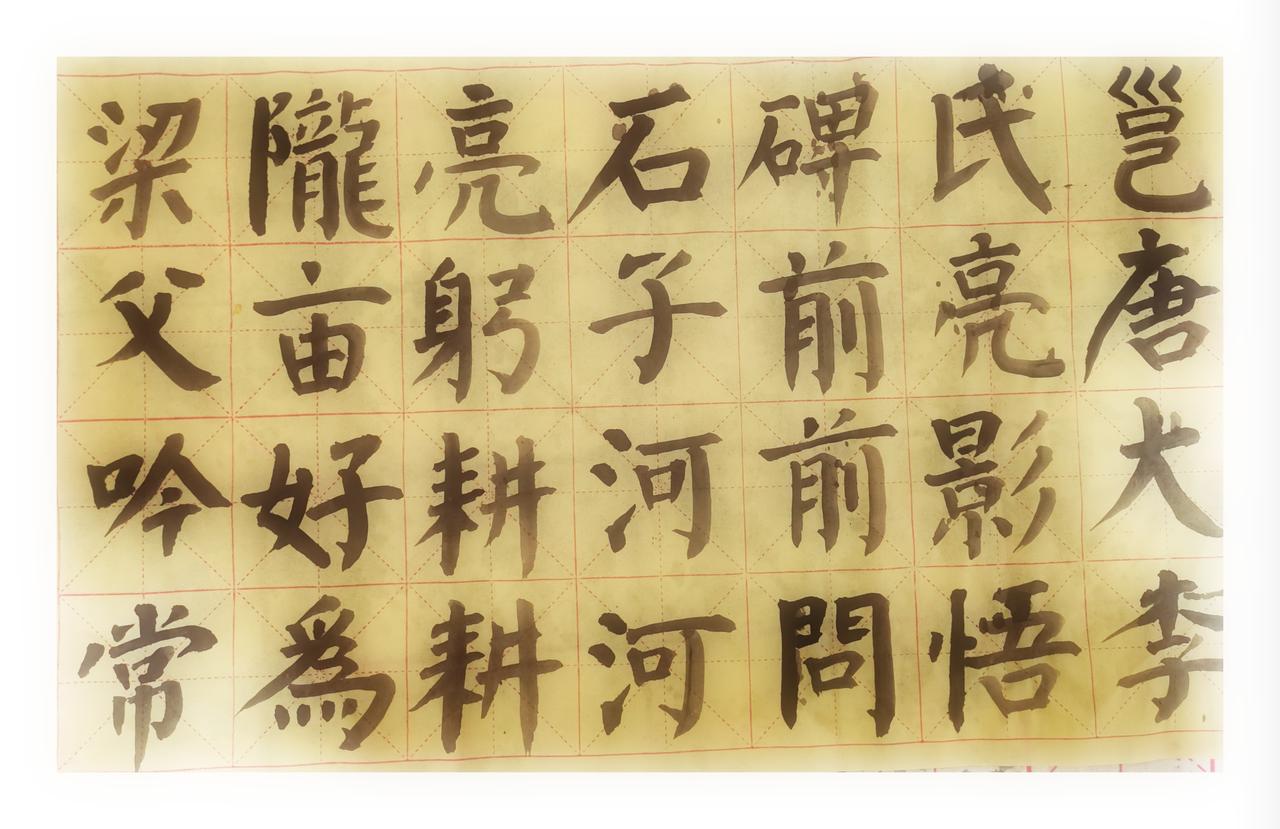 邕唐大李
氏亮影悟
碑前前問
石子河河
亮躬耕耕
隴亩好為
梁父吟常